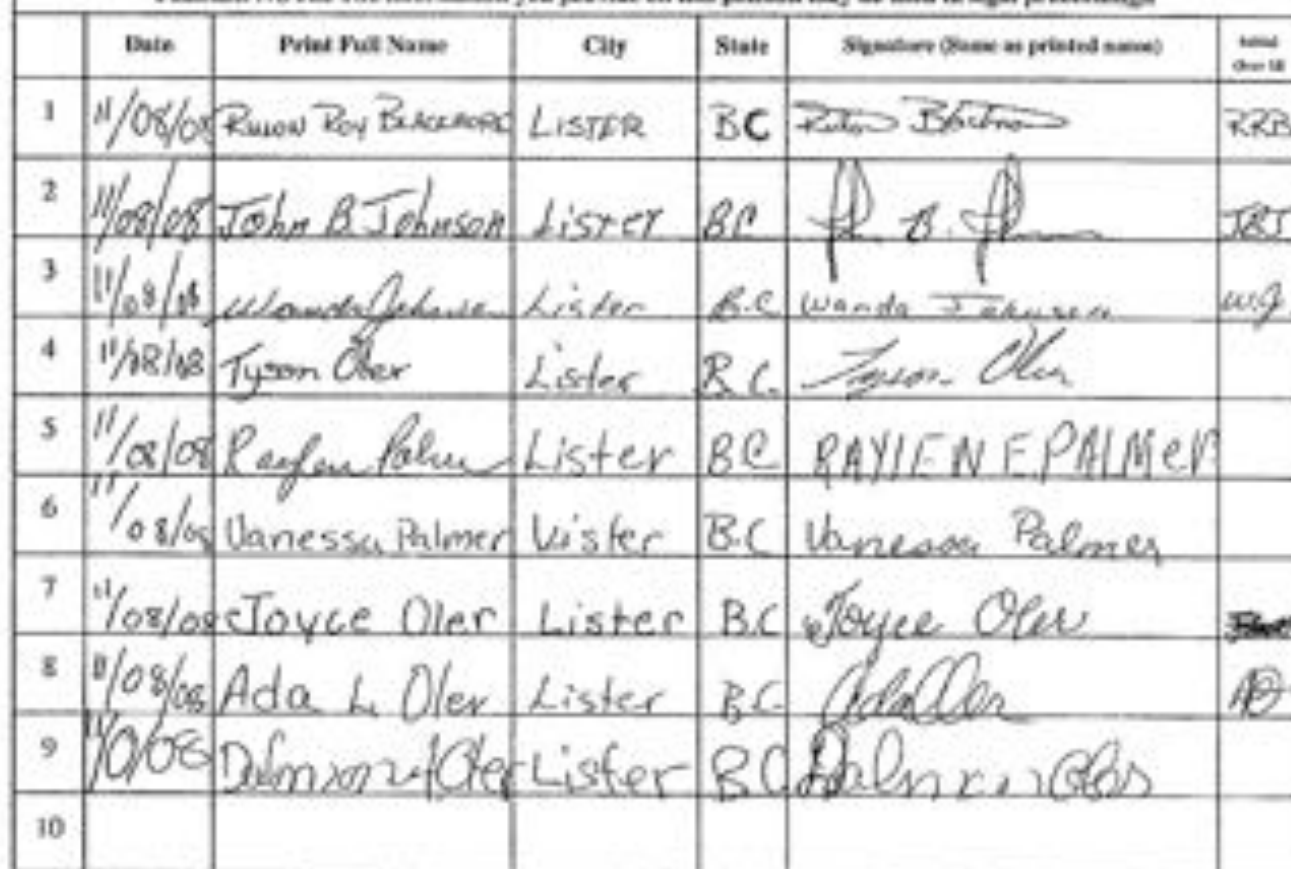 Date Print Full Name City State Signature (Same as printed name) Initial Over 18
1 11/08/08 Roy LISTER BC RRB
2 11/08/08 John B. Johnson Lister BC B. JBJ
3 11/08/08 Wanda Johnson Lister B.C Wanda Johnson W.J.
4 11/08/08 Tyson Oler Lister B.C. Tyson Oler
5 11/08/08 Lister BC RAYLENE PALMER
6 11/08/08 Vanessa Palmer Lister B.C Vanessa Palmer
7 11/08/08 Joyce Oler Lister B.C Joyce Oler
8 11/08/08 Ada L. Oler Lister B.C. Ada Oler AO
9 Lister BC
10